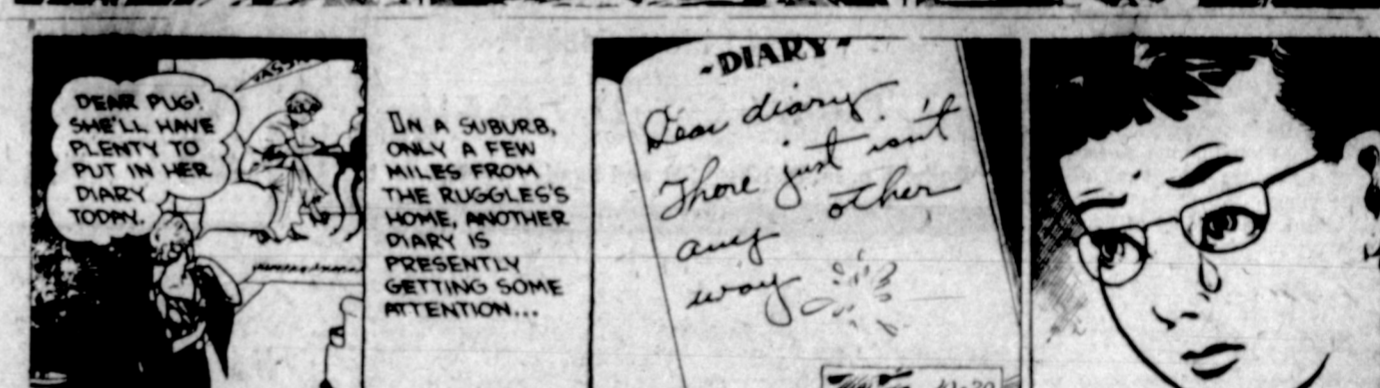 DEAR PUG!
SHE'LL HAVE
PLENTY TO
PUT IN HER
DIARY
TODAY.
IN A SUBURB,
ONLY A FEW
MILES FROM
THE RUGGLES'S
HOME, ANOTHER
DIARY IS
PRESENTLY
GETTING SOME
ATTENTION...
-DIARY-
Dear diary
There just isn't
any other
way